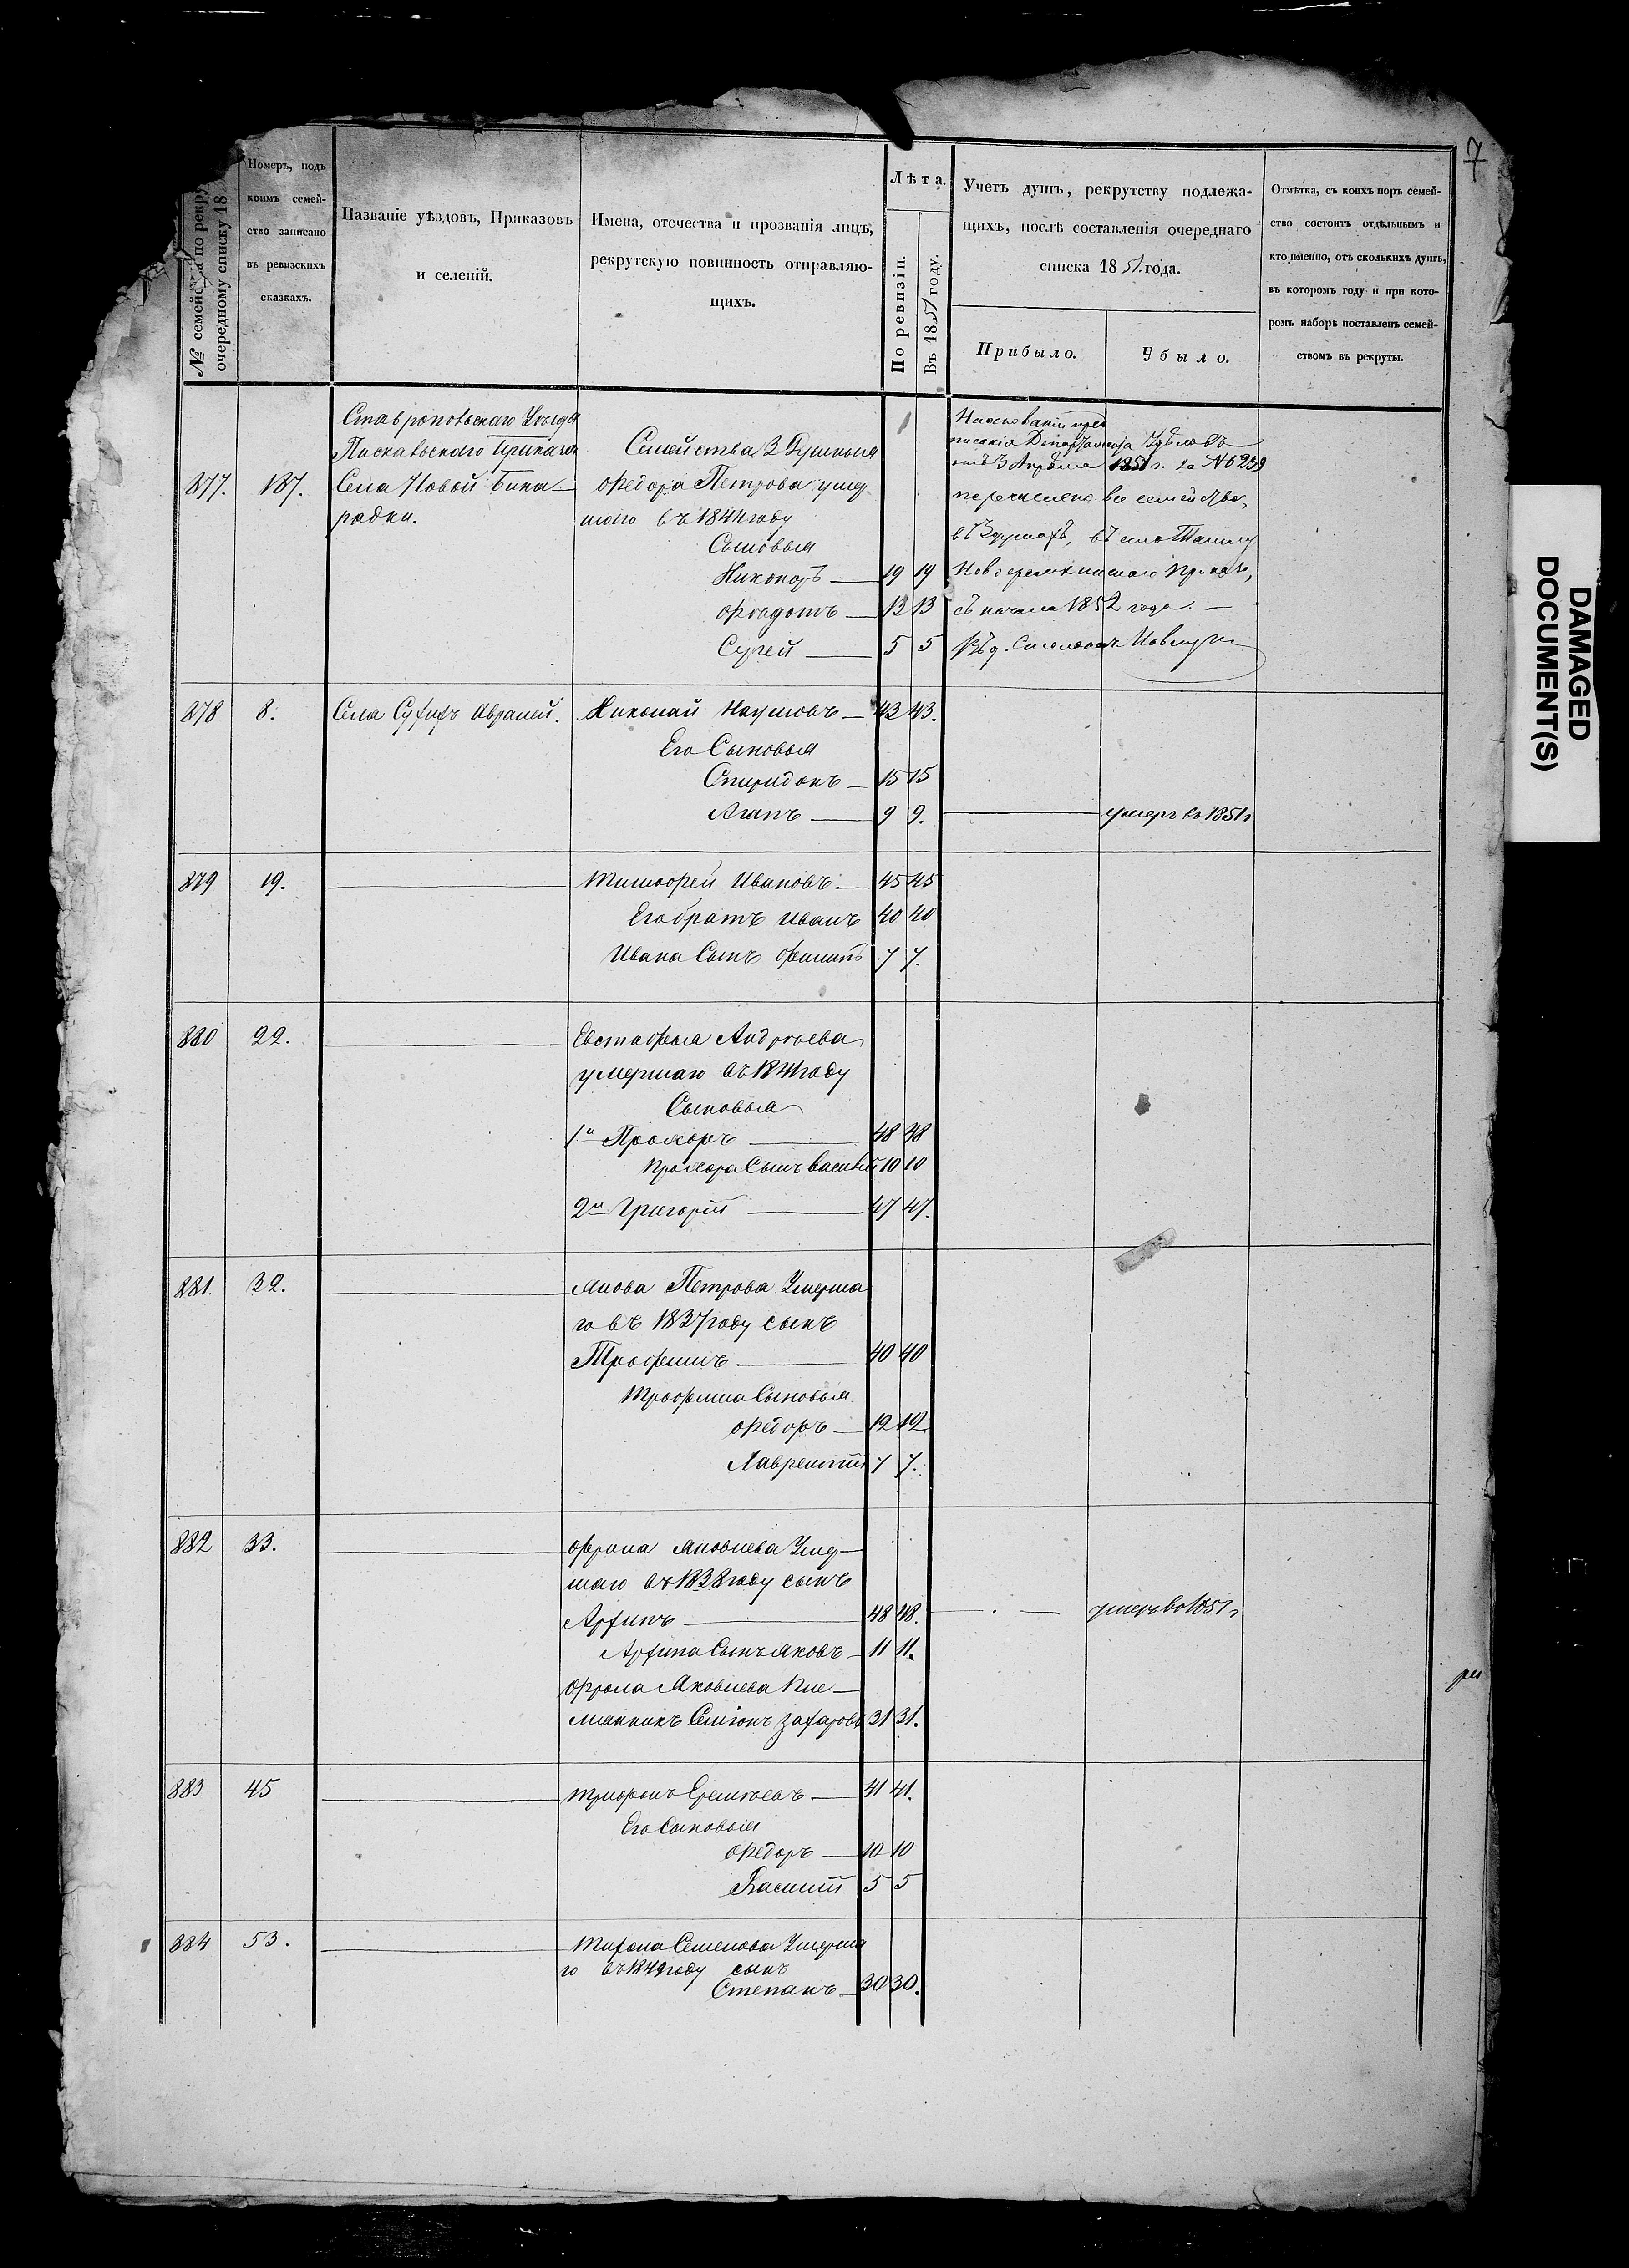 7
№ семейства по рекру
очередному списку 18
Номеръ, подъ
коимъ семей-
ство записано
въ ревизскихъ
сказкахъ.
Названіе уѣздовъ, Приказовъ
и селеній.
Имена, отечества и прозванія лицъ,
рекрутскую повинность отправляю-
щихъ.
Лѣта.
По ревизіи.
Въ 1851 году.
Учетъ душъ, рекрутству подлежа-
щихъ, послѣ составленія очереднаго
списка 1851 года.
Прибыло.
Убыло.
Отмѣтка, съ коихъ поръ семей-
ство состоитъ отдѣльнымъ и
кто именно, отъ сколькихъ душъ,
въ которомъ году и при кото-
ромъ наборѣ поставленъ семей-
ствомъ въ рекруты.
877. 187.
Ставропольскаго Уѣзда
Приказа
Села Новой Бина-
радки.
Семейства 3 Душныя
Федора Петрова умер
шаго въ 1844 году
Сыновья
19 19
Федотъ 13 13
Сергей 5 5
На основаніи пред
писанія Департамента Удѣловъ
отъ 3 Апрѣля 1851 г. за № 239
перечислено все семейство,
въ село
Приказа,
съ начала 1852 года.
878 8. Села Авралей. Николай Наумовъ 43 43.
Его Сыновья
Спиридонъ 15 15
Агапъ 9 9. умеръ въ 1851 г
879 19. Тимофей Ивановъ 45 45
Его братъ Иванъ 40 40
Ивана Сынъ Филипъ 7 7.
880 22. Евстафья Андреева
умершаго въ 1841 году
Сыновья
1й Прохоръ 48 48
Прохора Сынъ Василій 10 10
2й Григорій 47 47.
881. 32. Якова Петрова Умерша
го въ 1837 году сынъ
Трофимъ 40 40
Трофима Сыновья
Федоръ 12 12.
Лаврентій 7 7.
882 33. Фрола Яковлева Умер-
шаго въ 1838 году сынъ
Архипъ 48 48. умеръ въ 1851 г
Архипа Сынъ Яковъ 11 11.
Фрола Яковлева Пле-
мянникъ Семіонъ Захаровъ 31 31.
883 45 Трифонъ Еремѣевъ 41 41.
Его Сыновья
Федоръ 10 10
Василій 5 5
884 53. Тихона Семенова Умерша
го въ 1849 году сынъ
Степанъ 30 30.
DAMAGED
DOCUMENT(S)